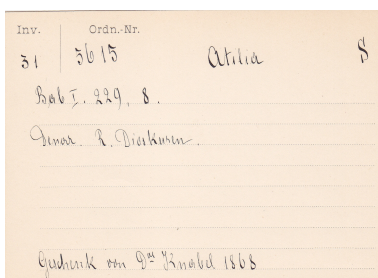 Inv. Ordn.-Nr.
31 3615 Atilia S
Bab I. 229, 8.
Denar. R. Dioskuren.
Geschenk von Dr Knabel 1868